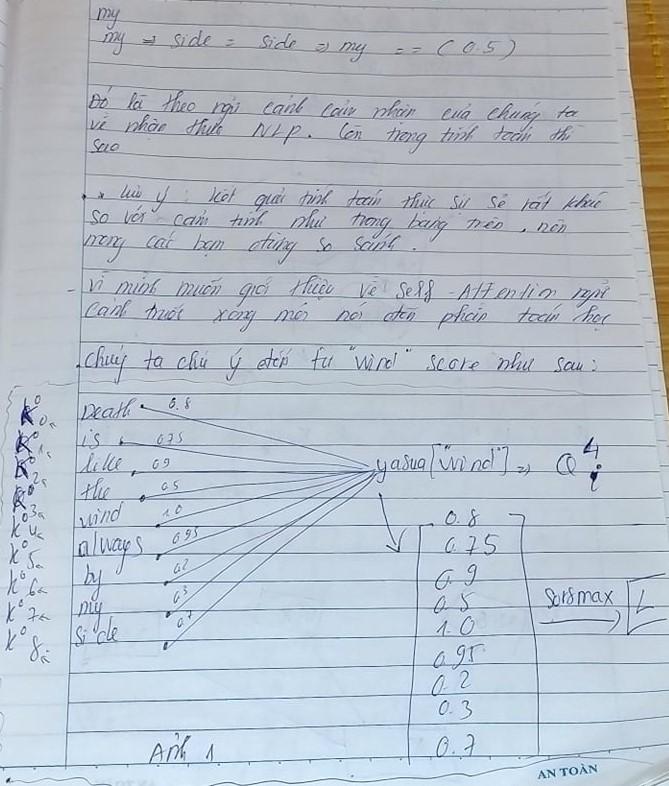 my
my ⇒ side = side ⇒ my == (0.5)
Đó là theo ngữ cảnh cảm nhận của chúng ta
về nhận thức NLP. Còn trong tính toán thì
sao
* Lưu ý: kết quả tính toán thực sự sẽ rất khác
so với cảm tính như trong bảng trên, nên
mong các bạn đừng so sánh.
- Vì mình muốn giới thiệu về Self-Attention ngữ
cảnh trước xong mới nói đến phần toán học
. chúng ta chú ý đến từ "wind" score như sau:
Death 0.8
is 0.75
like 0.9
the 0.5
wind 1.0
always 0.95
by 0.2
my 0.3
side 0.7
yasua["wind"] ⇒ Q 4 i
K⁰ 0
K⁰ 1
K⁰ 2
K⁰ 3
K⁰ 4
K⁰ 5
K⁰ 6
K⁰ 7
K⁰ 8
0.8
0.75
0.9
0.5
1.0
0.95
0.2
0.3
0.7
Sofsmax
Ảnh 1
AN TOÀN